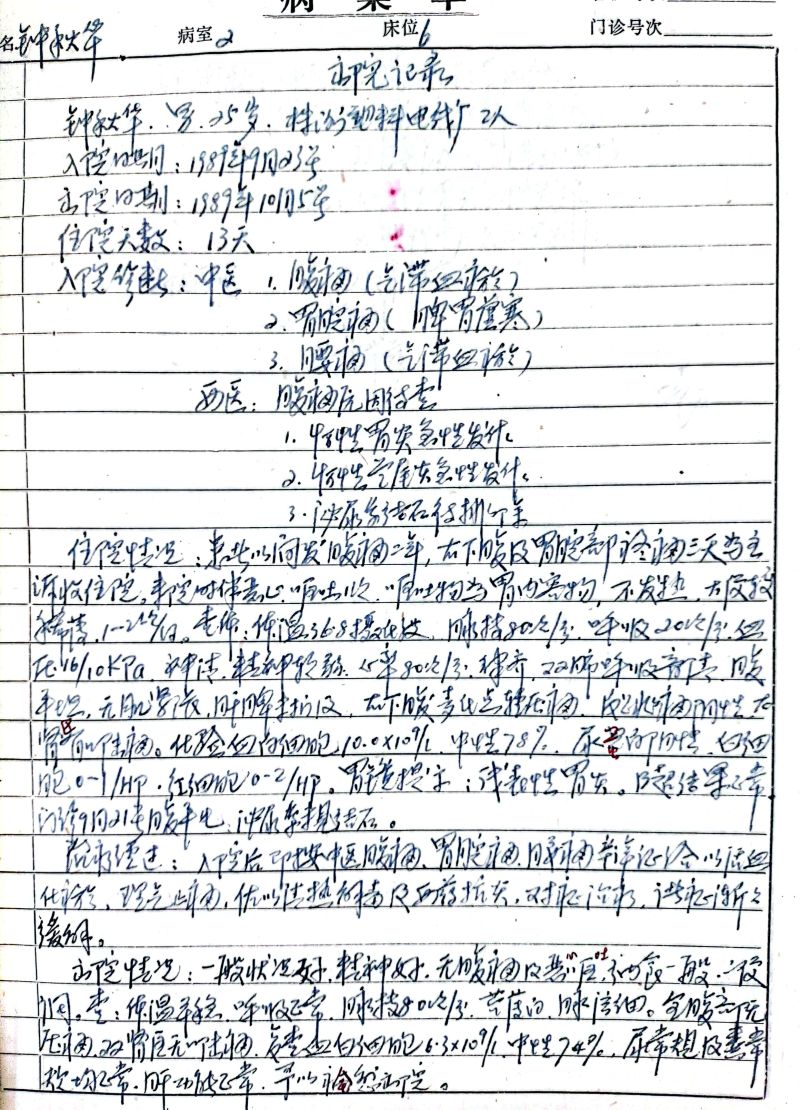 病案单
名 钟秋华 病室 2 床位 6 门诊号次
出院记录
钟秋华、男、25岁、株洲塑料电线厂工人
入院日期：1989年9月23号
出院日期：1989年10月5号
住院天数：13天
入院诊断：中医 1. 腹痛（气滞血瘀）
2. 胃脘痛（脾胃虚寒）
3. 腰痛（气滞血瘀）
西医：腹痛原因待查
1. 慢性胃炎急性发作
2. 慢性阑尾炎急性发作
3. 泌尿系结石待排除
住院情况：患者以间发腹痛二年，右下腹及胃脘部疼痛三天为主
诉收住院。来院时伴恶心，呕吐 次，呕吐物为胃内容物，不发热，大便较
稀薄，1-2次/日。查体：体温36.8摄氏度，脉搏80次/分，呼吸20次/分，血
压16/10KPa，神清，精神软弱，心率80次/分，律齐，双肺呼吸音清，腹
平坦，无肌紧张，肝脾未扪及，右下腹麦氏点轻压痛，反跳痛阴性，右
肾区有叩击痛。化验白细胞10.0×10⁹/L，中性78%，尿蛋白阴性，白细
胞0-1/HP，红细胞0-2/HP。胃镜提示：浅表性胃炎。B超结果正常，
门诊9月21号腹平片：泌尿系未见结石。
治疗经过：入院后即按中医腹痛、胃脘痛、腰痛辨证论治以活血
化瘀，理气止痛，佐以清热解毒及西药抗炎，对症治疗，诸症渐渐
缓解。
出院情况：一般状况好，精神好，无腹痛及恶心呕吐，纳食一般，二便
调。查：体温平稳，呼吸正常，脉搏80次/分，苔薄白，脉弦细。全腹部无
压痛，双肾区无叩击痛，复查血白细胞6.3×10⁹/L，中性74%，尿常规及粪常
规均正常，肝功能正常，予以痊愈出院。